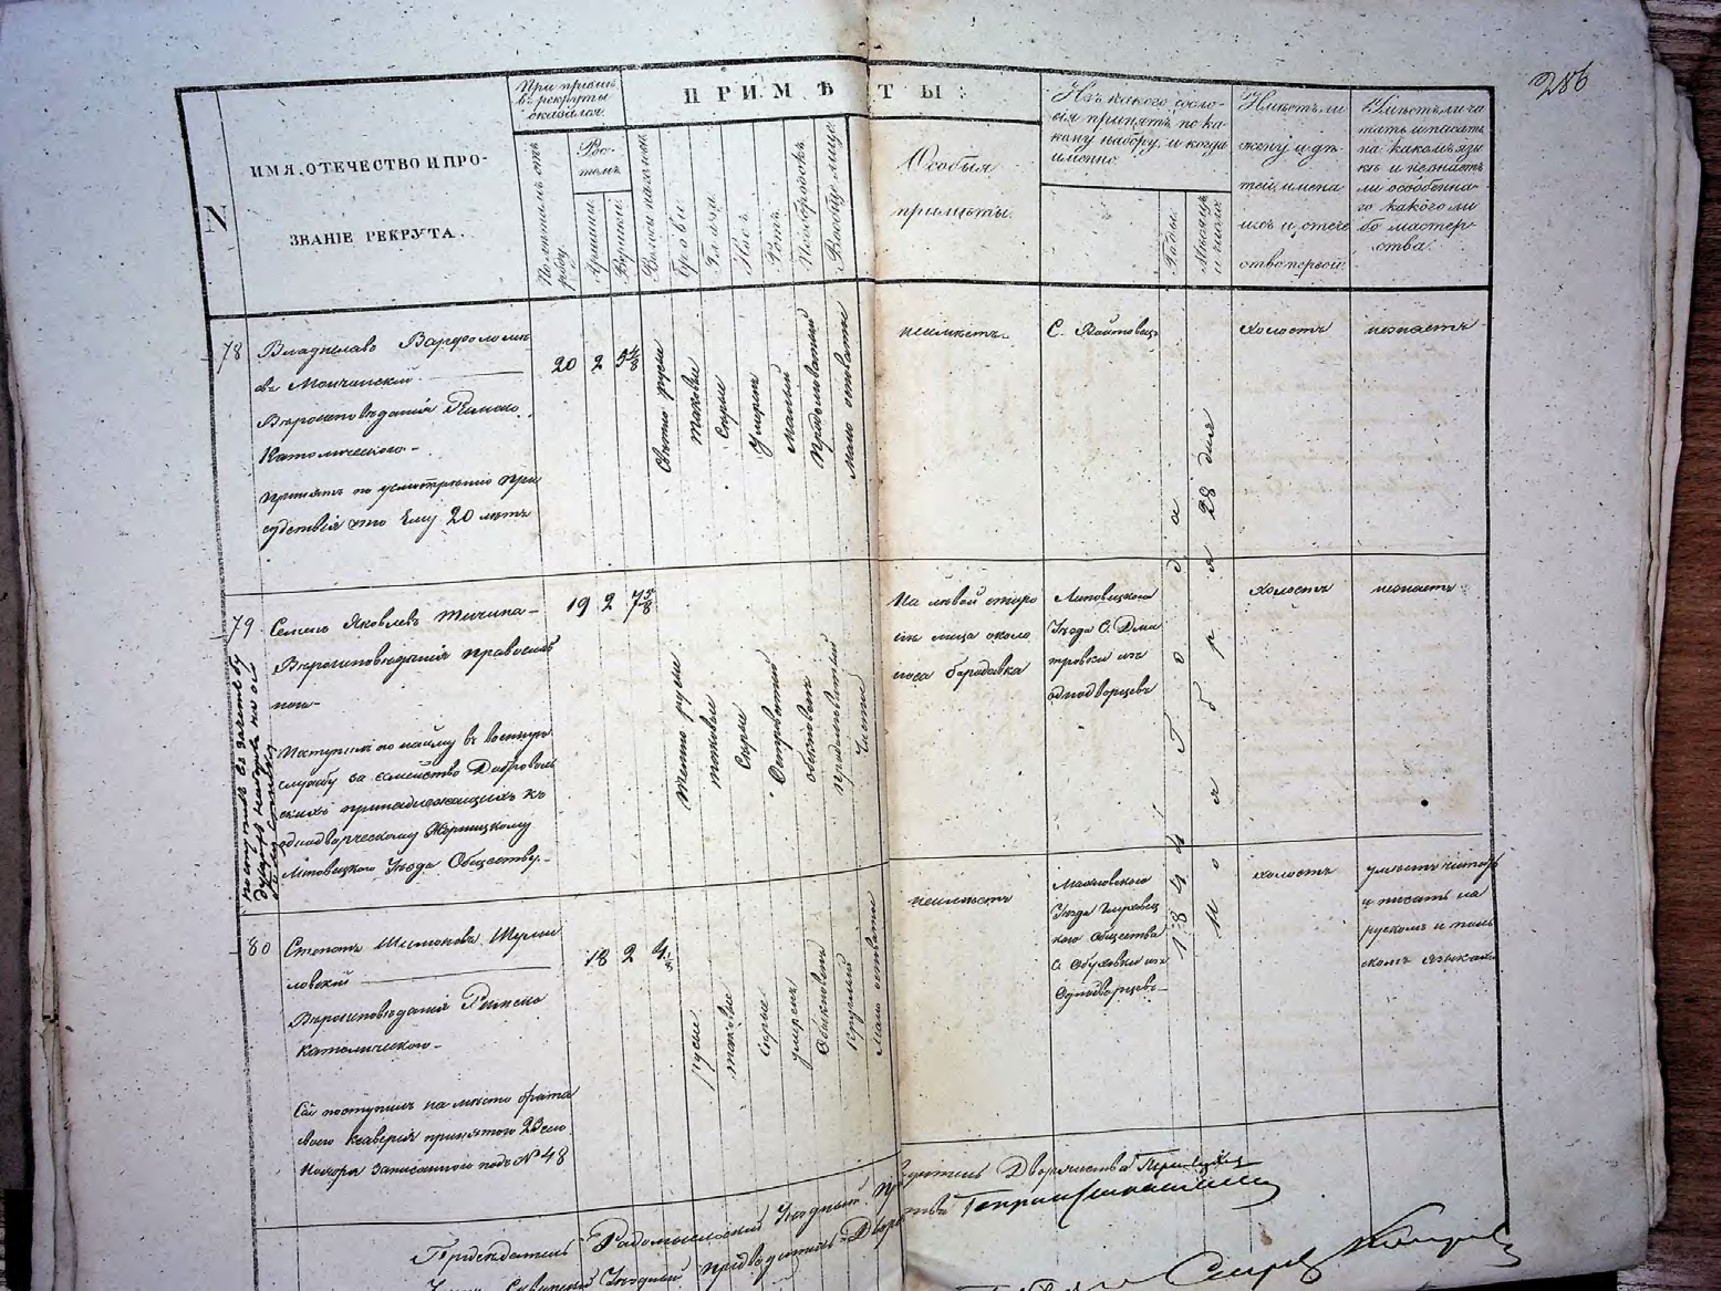 286
N
ИМЯ, ОТЕЧЕСТВО И ПРО-
ЗВАНІЕ РЕКРУТА.
При пріемѣ
въ рекруты
оказался.
По лѣтамъ отъ
роду.
Ро-
стомъ
Аршины.
Вершки.
ПРИМѢТЫ:
Волосы на головѣ
Брови
Глаза
Носъ
Ротъ
Подбородокъ
Вообще лице
Особыя
примѣты.
Изъ какого сосло-
вія принятъ, по ка-
кому набору, и когда
именно.
Годы.
Мѣсяцъ
и число.
Имѣетъ ли
жену и дѣ-
тей, имена
ихъ и отече
ство первой.
Умѣетъ ли чи
тать и писать
на какомъ язы
кѣ и не знаетъ
ли особенна-
го какого ли
бо мастер-
ства.
78
Владиславъ Варфоломѣ
евъ Мончинскій
Вѣроисповѣданія Римско
Католическаго-
Принятъ по усмотрѣнію При
судствія что Ему 20 лѣтъ
20 2 5 1/8
Свѣтло русы
таковы
Сѣрые
Умѣренъ
Малый
Продолговатый
Мало осповатъ
неимѣетъ
С. Войтовецъ
холостъ
незнаетъ
79
Семенъ Яковлевъ Тичина-
Вѣроисповѣданія православ
наго-
Поступилъ по найму въ Военную
службу за семейство Добровол
скихъ принадлежащихъ къ
однодворческому Жорницкому
Липовецкого Уѣзда Обществу.-
19 2 7 5/8
темно русы
таковы
Сѣрые
Островатый
обыкновенъ
продолговатый
Чистое
На лѣвой сторо
нѣ лица около
носа бородавка
Липовецкого
Уѣзда С. Дми
тровки изъ
однодворцевъ
холостъ
незнаетъ
80
Степанъ Шимоновъ Шуми
ловскій
Вѣроисповѣданія Римско
католическаго-
Сей поступилъ на мѣсто брата
своего Ксаверія принятого 23 сего
Ноября записанного подъ № 48
18 2 4
русы
таковы
Сѣрые
умѣренъ
Обыкновенъ
Круглый
Мало осповатое
неимѣетъ
Махновского
Уѣзда Глуховец
кого Общества
С. Обуховки изъ
Однодворцевъ-
1844 Года
Ноября 28 дня
холостъ
умѣетъ читать
и писать на
рускомъ и поль
скомъ языкахъ
Предсѣдатель Радомысльскій Уѣздный Предводитель Дворянства
Сквирскій Уѣздный предводитель Дворянства